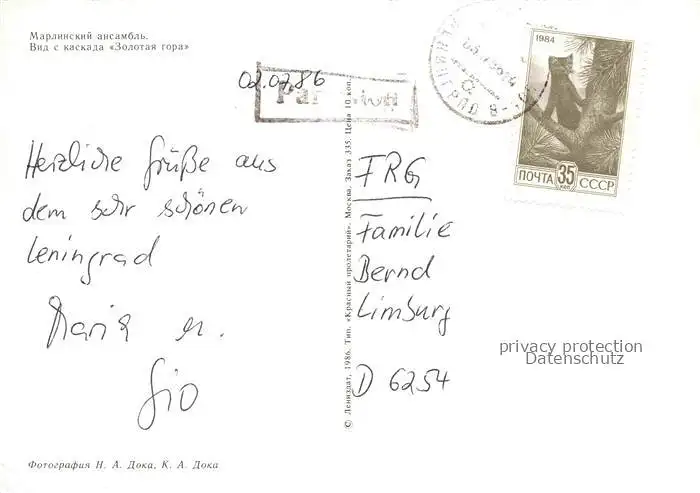 Марлинский ансамбль.
Вид с каскада «Золотая гора»
02.07.86
Par avion
1984
ПОЧТА 35 коп СССР
Herzliche Grüße aus
dem sehr schönen
Leningrad
Maria u.
Gio
FRG
Familie
Bernd
Limburg
D 6254
privacy protection
Datenschutz
© Лениздат, 1986. Тип. «Красный пролетарий». Москва. Заказ 335. Цена 10 коп.
Фотография Н. А. Дока, К. А. Дока